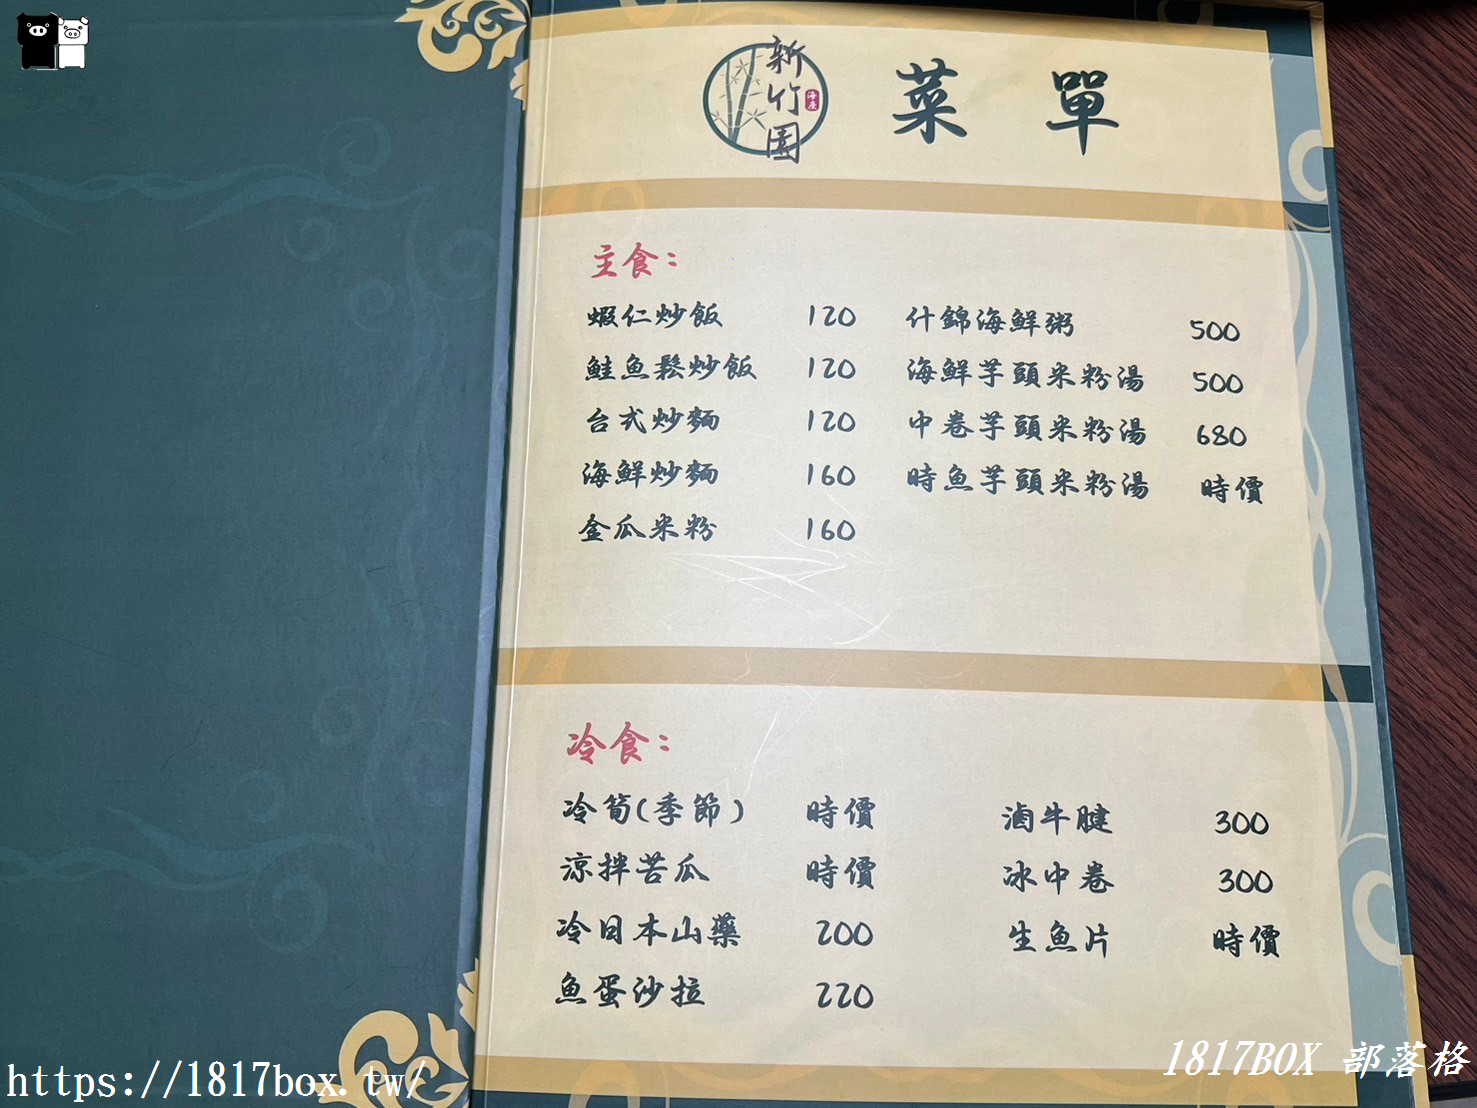 新竹園
海產
菜單
主食：
蝦仁炒飯 120
鮭魚鬆炒飯 120
台式炒麵 120
海鮮炒麵 160
金瓜米粉 160
什錦海鮮粥 500
海鮮芋頭米粉湯 500
中卷芋頭米粉湯 680
時魚芋頭米粉湯 時價
冷食：
冷筍(季節) 時價
涼拌苦瓜 時價
冷日本山藥 200
魚蛋沙拉 220
滷牛腱 300
冰中卷 300
生魚片 時價
https://1817box.tw/
1817BOX 部落格